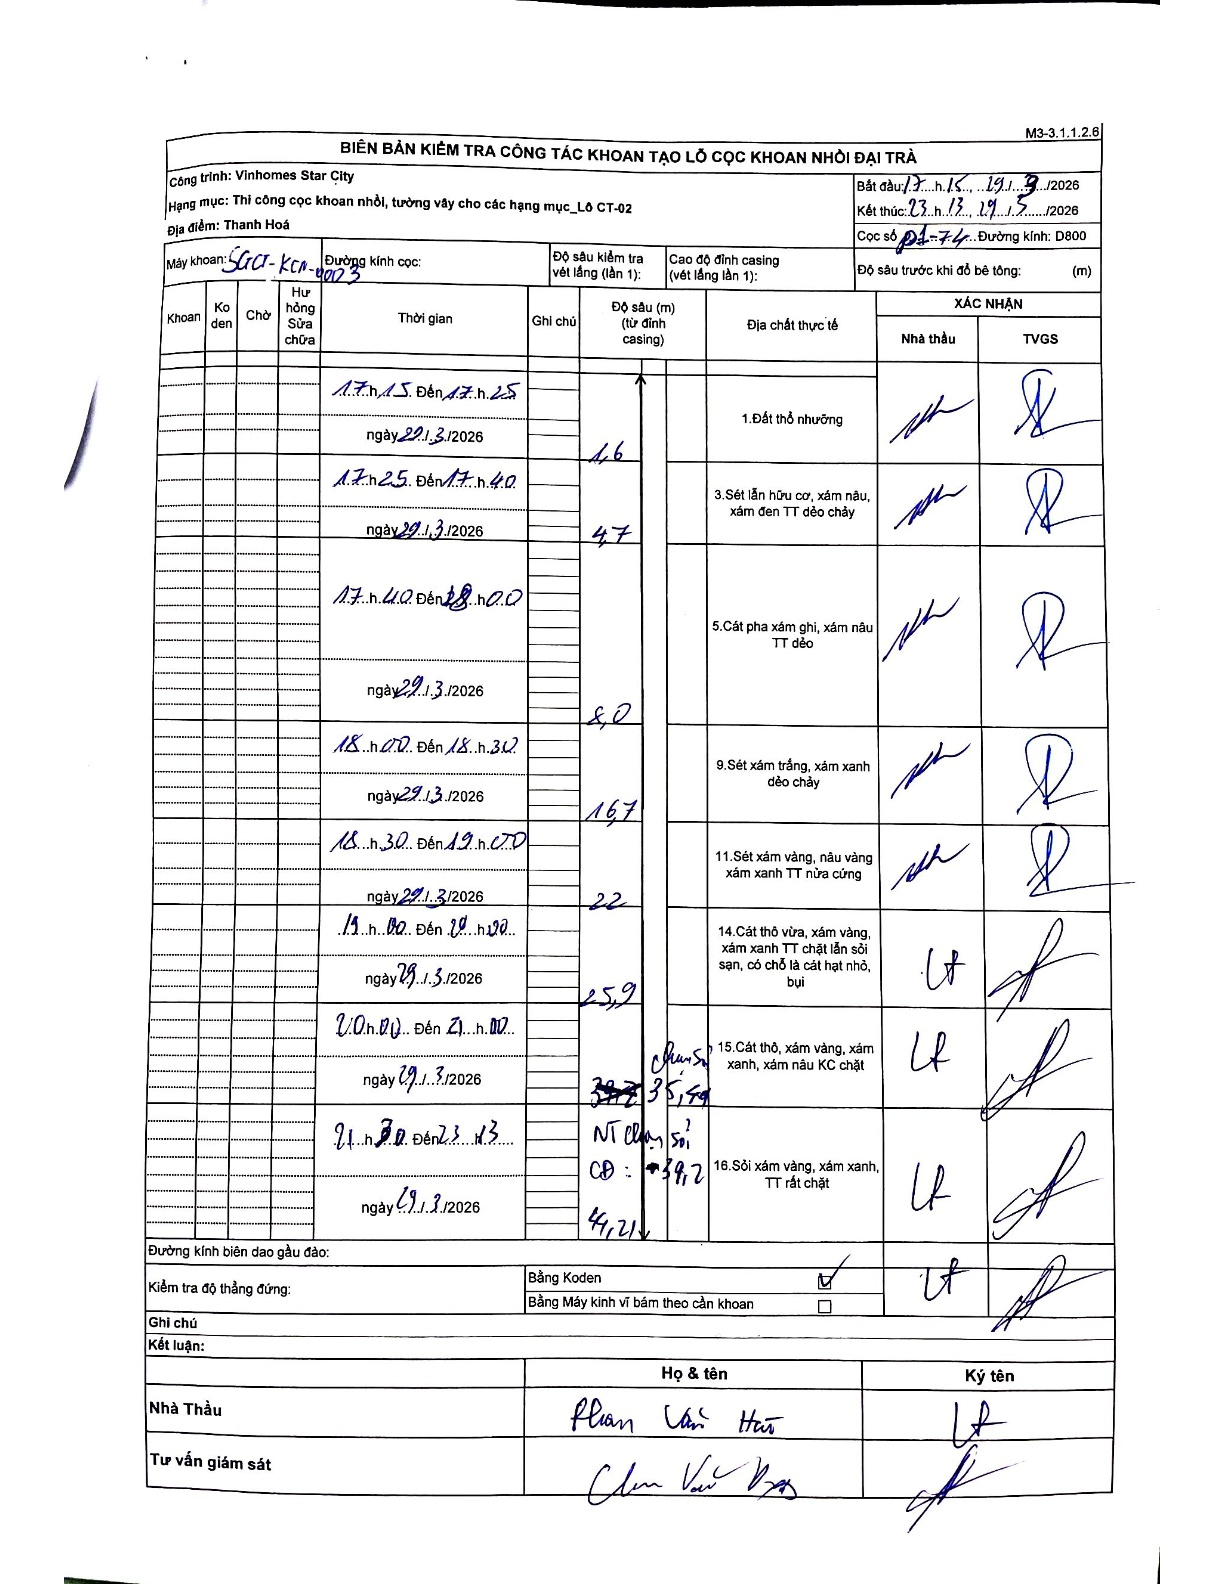 M3-3.1.1.2.6
BIÊN BẢN KIỂM TRA CÔNG TÁC KHOAN TẠO LỖ CỌC KHOAN NHỒI ĐẠI TRÀ
Công trình: Vinhomes Star City
Hạng mục: Thi công cọc khoan nhồi, tường vây cho các hạng mục_Lô CT-02
Địa điểm: Thanh Hoá
Bắt đầu: 17 h 15, 29 / 3 /2026
Kết thúc: 23 h 13, 29 / 3 /2026
Cọc số P1-74 Đường kính: D800
Máy khoan: SGCT-KCN-0003
Đường kính cọc:
Độ sâu kiểm tra vét lắng (lần 1):
Cao độ đỉnh casing (vét lắng lần 1):
Độ sâu trước khi đổ bê tông: (m)
Khoan
Ko den
Chờ
Hư hỏng Sửa chữa
Thời gian
Ghi chú
Độ sâu (m) (từ đỉnh casing)
Địa chất thực tế
XÁC NHẬN
Nhà thầu
TVGS
17 h 15 Đến 17 h 25
ngày 29 / 3 /2026
1,6
1.Đất thổ nhưỡng
17 h 25 Đến 17 h 40
ngày 29 / 3 /2026
4,7
3.Sét lẫn hữu cơ, xám nâu,
xám đen TT dẻo chảy
17 h 40 Đến 18 h 00
ngày 29 / 3 /2026
8,0
5.Cát pha xám ghi, xám nâu
TT dẻo
18 h 00 Đến 18 h 30
ngày 29 / 3 /2026
16,7
9.Sét xám trắng, xám xanh
dẻo chảy
18 h 30 Đến 19 h 00
ngày 29 / 3 /2026
22
11.Sét xám vàng, nâu vàng
xám xanh TT nửa cứng
19 h 00 Đến 20 h 00
ngày 29 / 3 /2026
25,9
14.Cát thô vừa, xám vàng,
xám xanh TT chặt lẫn sỏi
sạn, có chỗ là cát hạt nhỏ,
bụi
20 h 00 Đến 21 h 00
ngày 29 / 3 /2026
chạm sỏi
35,49
15.Cát thô, xám vàng, xám
xanh, xám nâu KC chặt
21 h 30 Đến 23 h 13
ngày 29 / 3 /2026
NT chạm sỏi
CĐ : -39,2
41,21
16.Sỏi xám vàng, xám xanh,
TT rất chặt
Đường kính biên dao gầu đào:
Kiểm tra độ thẳng đứng:
Bằng Koden
Bằng Máy kinh vĩ bám theo cần khoan
Ghi chú
Kết luận:
Họ & tên
Ký tên
Nhà Thầu
Phan Văn
Tư vấn giám sát
Văn